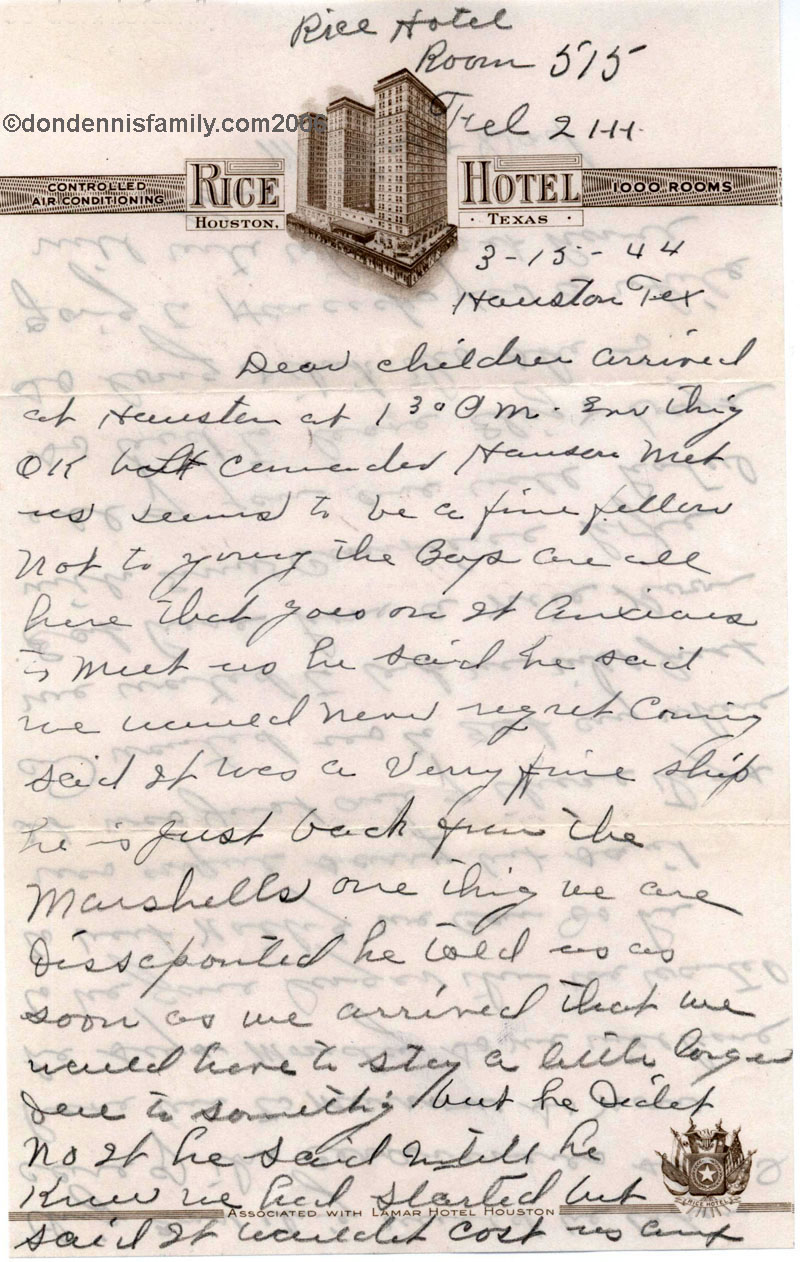 Rice Hotel
Room 515
Tel 2144
©dondennisfamily.com200
CONTROLLED
AIR CONDITIONING
RICE HOTEL
1000 ROOMS
HOUSTON, TEXAS
3-15-44
Houston Tex
Dear children arrived
at Houston at 1 30 P M. Evr thig
OK Comander Hansen Met
us seems to be a fine fellow
Not to young the Boys are all
here that goes on It Anxious
to Meet us he said he said
we would never regret Coming
said It was a Verry fine ship
he is Just back from the
Marshells one thig we are
Dissaponted he told us as
soon as we arrived that we
would have to stay a little longer
Due to somethig but he Didet
No It he said untill he
Knew we had started but
ASSOCIATED WITH LAMAR HOTEL HOUSTON
RICE HOTEL
said It wouldet cost us any